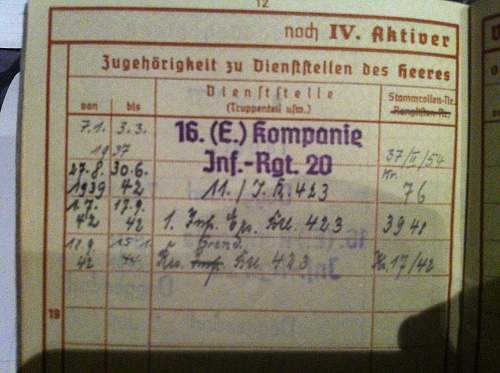 12
noch IV. Aktiver
Zugehörigkeit zu Dienststellen des Heeres
von bis Dienststelle (Truppenteil usw.) Stammrollen-Nr. Ranglisten-Nr.
7.1. 3.3. 1937 16. (E.) Kompanie Inf.-Rgt. 20 37/II/54
27.8. 1939 30.6. 42 11./I.R. 423 Kr. 76
1.7. 42 17.9. 42 1. Inf. Btl. 423 39 41
18.9. 42 15.1. 44 Gren. Inf. 423 Kr. 17/42
19